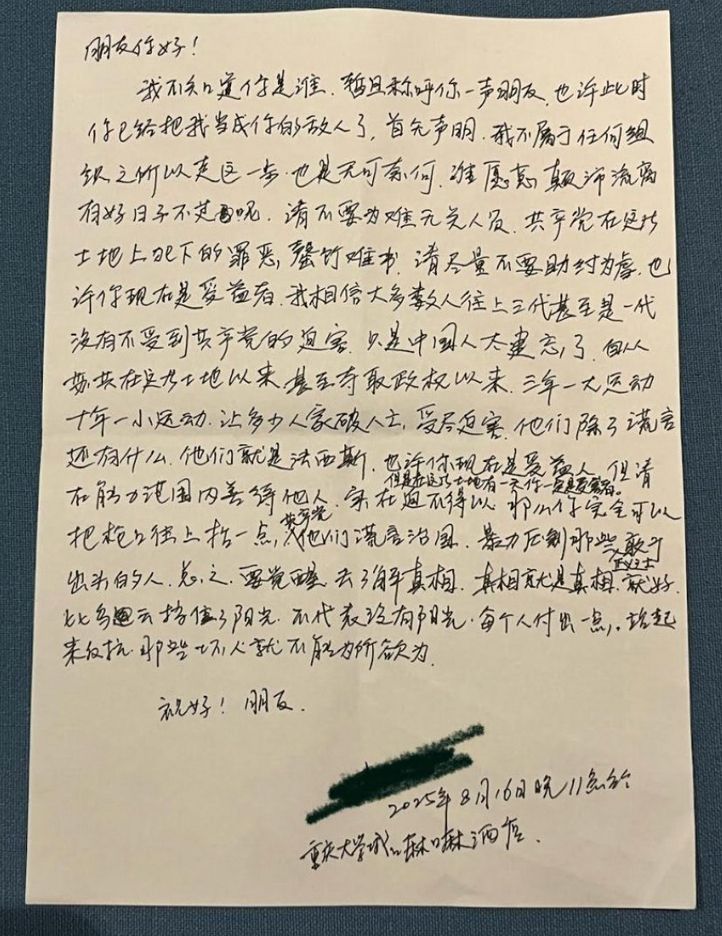 朋友你好！
我不知道你是谁，暂且称呼你一声朋友，也许此时
你已给把我当成你的敌人了，首先声明，我不属于任何组
织之所以走这一步也是无可奈何，谁愿意颠沛流离
有好日子不过呢，请不要为难无关人员，共产党在这片
土地上犯下的罪恶，罄竹难书，请尽量不要助纣为虐，也
许你现在是受益者，我相信大多数人往上三代甚至是一代
没有不受到共产党的迫害，只是中国人太健忘了，自从
共在这片土地以来甚至夺取政权以来，三年一大运动
十年一小运动，让多少人家破人亡，受尽迫害，他们除了谎言
还有什么，他们就是法西斯，也许你现在是受益人，但请
但是在这片土地有一天你一定是受害者。
在能力范围内善待他人，实在迫不得以，那么你完全可以
共产党
把枪口往上抬一点，他们谎言治国，暴力压制那些敢于
正义之士
出头的人，总之，要觉醒，去了解真相，真相就是真相，就好
比乌云挡住了阳光，不代表没有阳光，每个人付出一点，站起
来反抗，那些坏人就不能为所欲为，
祝好！朋友，
2025年8月16日晚11点于
重庆大学城麻麻酒店，